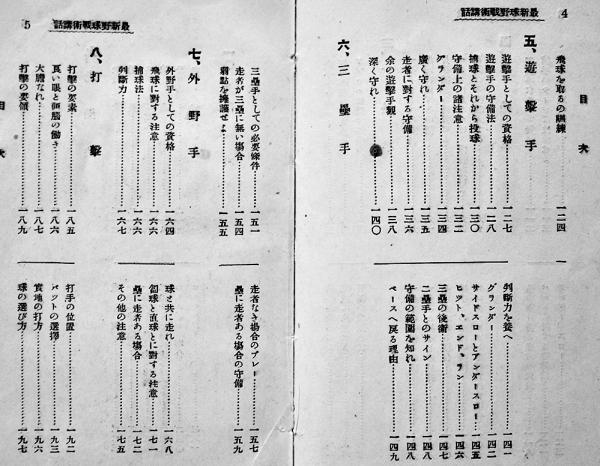 最新野球戰術講話 4
目次
飛球を取るの訓練……一二四
五、遊擊手
遊擊手としての資格……一二七
遊擊手の守備法……一二八
捕球とそれから投球……一三〇
守備上の諸注意……一三二
グランダー……一三四
廣く守れ……一三五
走者に對する守備……一三六
余の遊擊手觀……一三八
深く守れ……一四〇
六、三壘手
判斷力を養へ……一四一
グランダー……一四二
サイドスローとアンダースロー……一四五
ヒット、エンド、ラン……一四六
三壘の後衞……一四七
二壘手とのサイン……一四八
守備の範圍を知れ……一四八
ベースへ戻る理由……一四九
最新野球戰術講話 5
三壘手としての必要條件……一五一
走者が三壘に無い場合……一五四
弱點を擁護せよ……一五五
走者なき場合のプレー……一五七
壘に走者ある場合の守備……一五九
七、外野手
外野手としての資格……一六四
飛球に對する注意……一六六
捕球法……一六六
判斷力……一六七
球と共に走れ……一六八
匐球と直球とに對する注意……一七一
壘に走者ある場合……一七二
その他の注意……一七五
八、打擊
打擊の要素……一八五
良い眼と頭腦の働き……一八六
大膽なれ……一八七
打擊の要領……一八九
打手の位置……一九二
バットの選擇……一九三
實地の打方……一九六
球の選び方……一九七
目次